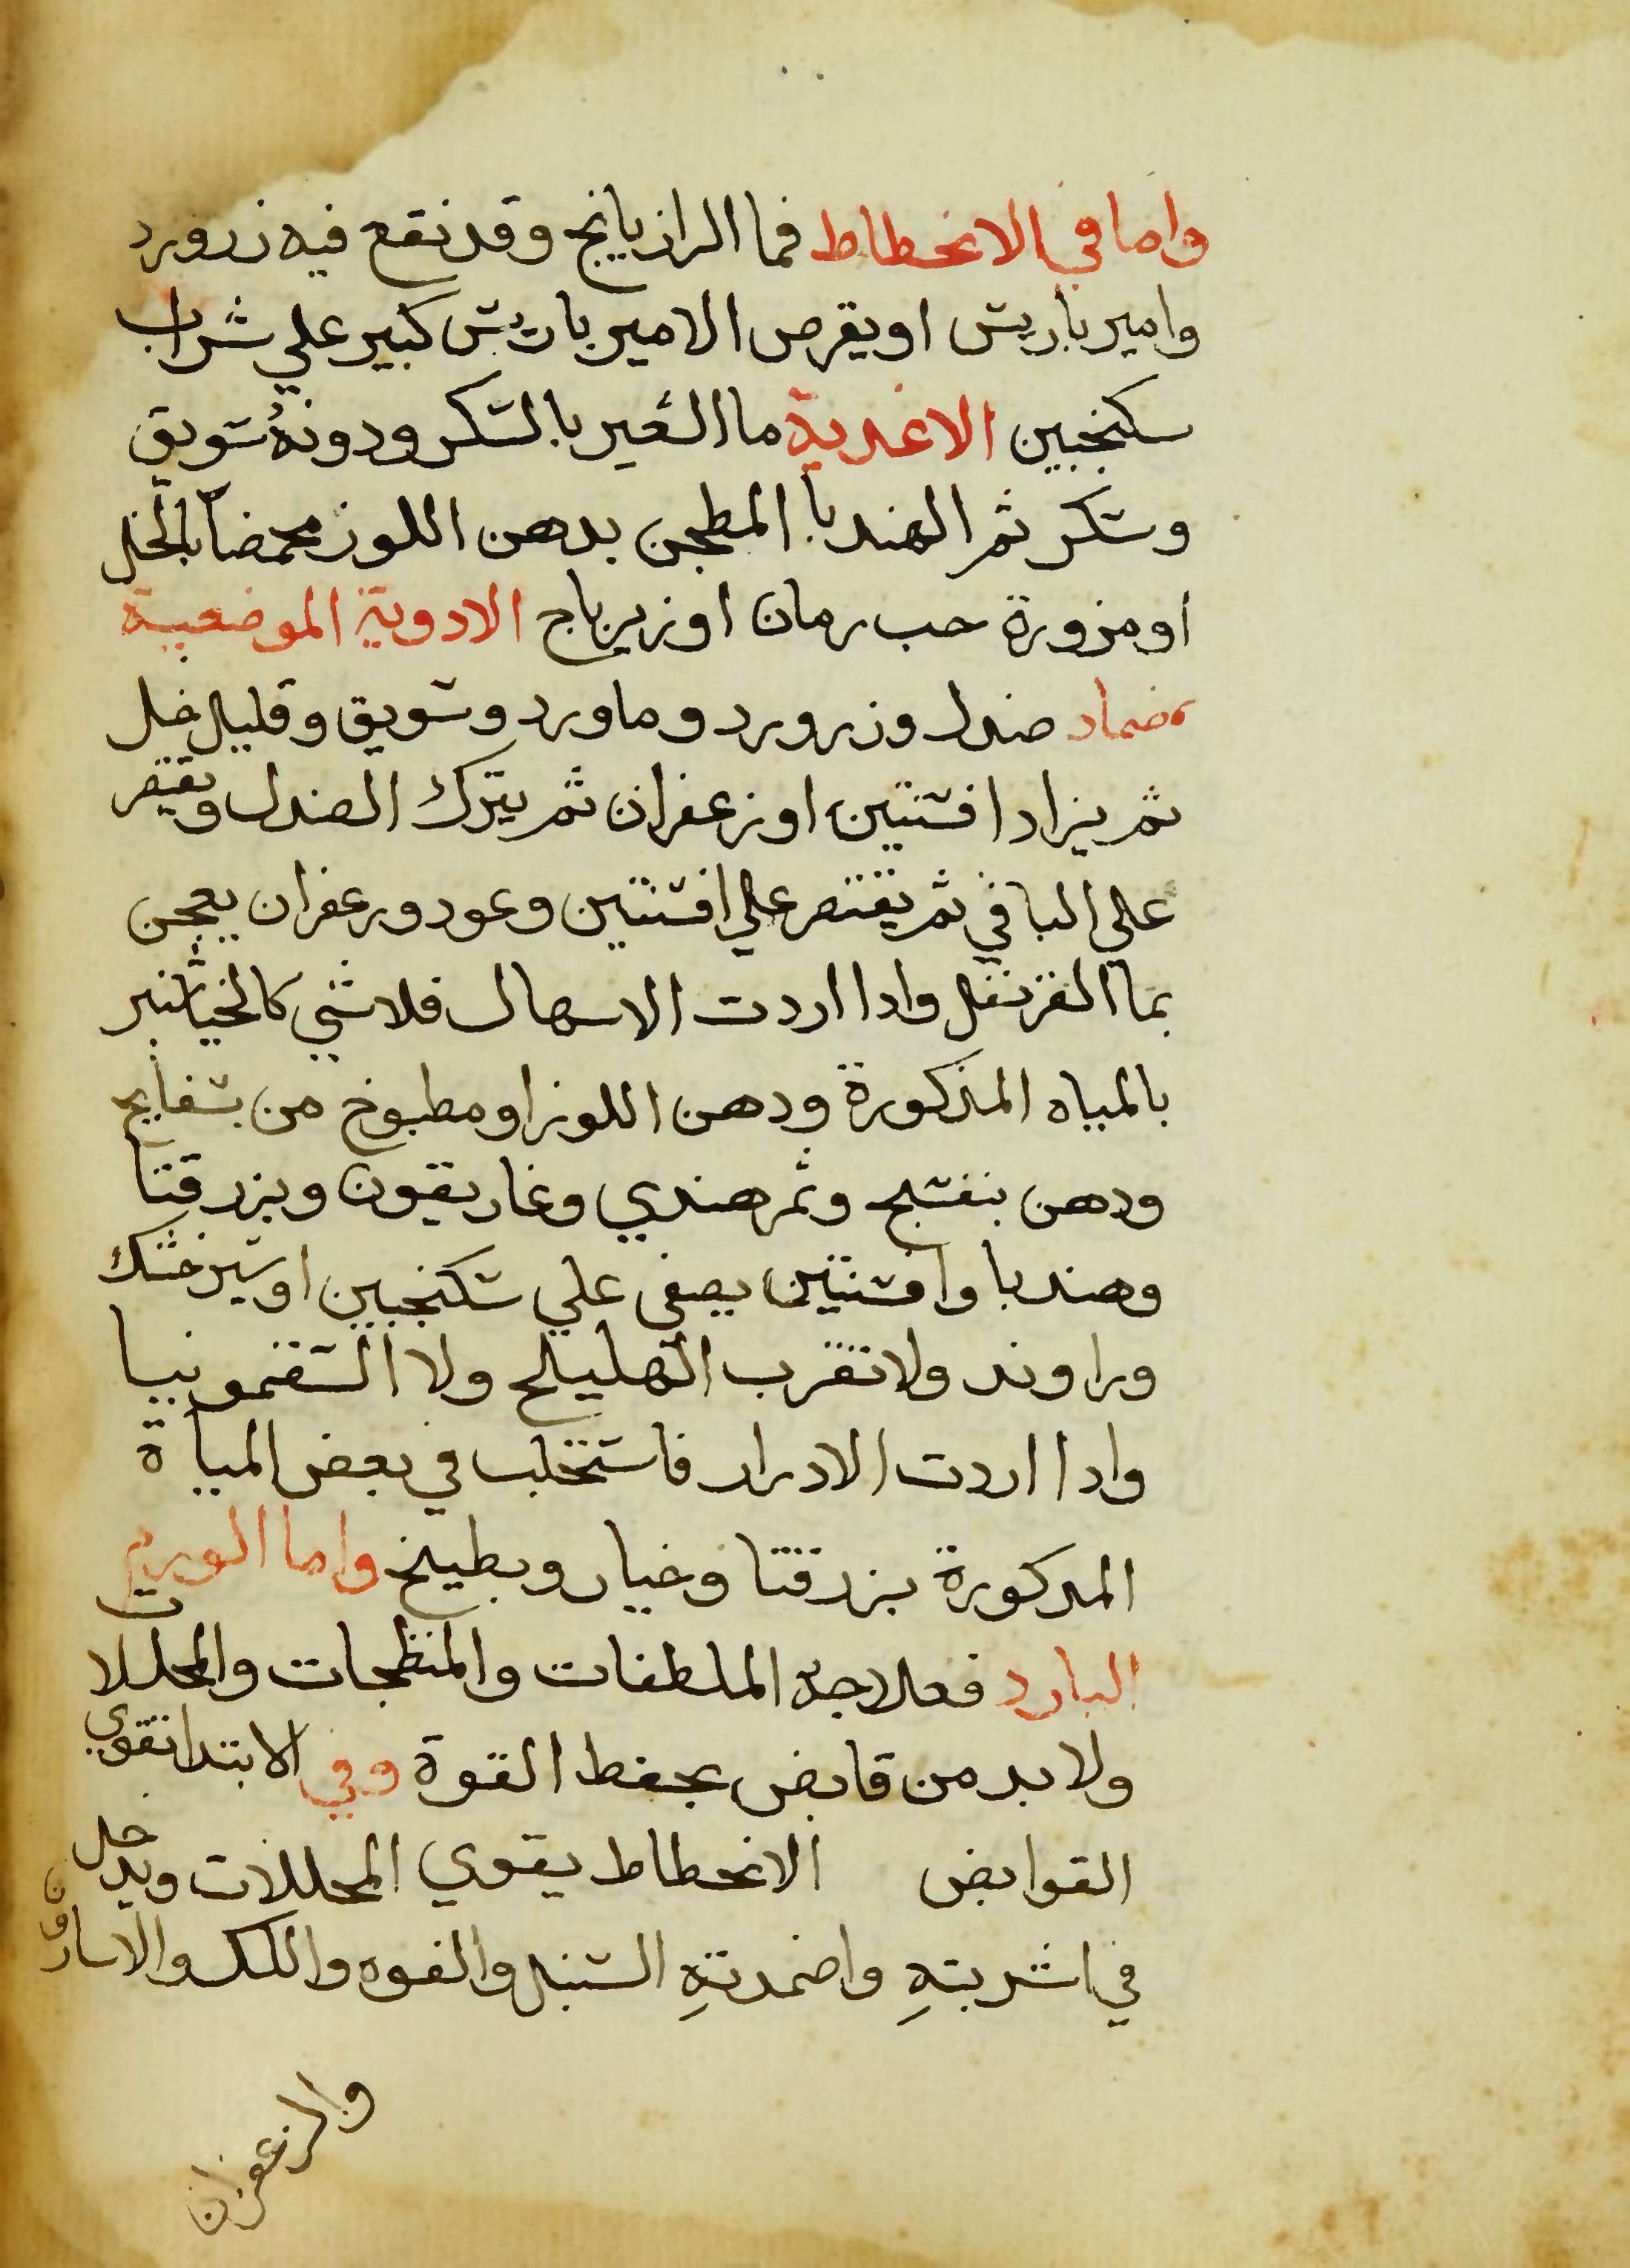 واما في الانحطاط فما الرازيانج وقد نقع فيه زرورد
وامير باريس او بقرص الامير باريس كبير علي شراب
سكنجبين الاغدية ما الشعير بالسكر ودونه سويق
وسكر ثم الهندبا المطجن بدهن اللوز محمضا بالخل
او مزورة حب رمان او زيرباج الادوية الموضعية
ضماد صندل وزرورد وماورد وسويق وقليل خل
ثم يزاد افسنتين او زعفران ثم يترك الصندل ويقتصر
علي الباقي ثم يقتصر علي افسنتين وعود وزعفران يعجن
بما القرنفل وادا اردت الاسهال فلا شي كالخيارشنبر
بالمياه المذكورة ودهن اللوز او مطبوخ من بسفايج
ودهن بنفسج وثمر هندي وغاريقون وبزر قثا
وهندبا وافسنتين يصفي علي سكنجبين او شيرخشك
وراوند ولا تقرب الهليلج ولا السقمونيا
وادا اردت الادرار فاستحلب في بعض المياة
المدكورة بزر قثا وخيار وبطيخ واما الورم
البارد فعلاجه الملطفات والمنظجات والمحللات
ولا بد من قابض يحفظ القوة وفي الابتدا تقوي
القوابض الانحطاط يقوي المحللات ويدخل
في اشربته واضمدته السنبل والفوه واللك والاسارون
والزعفران